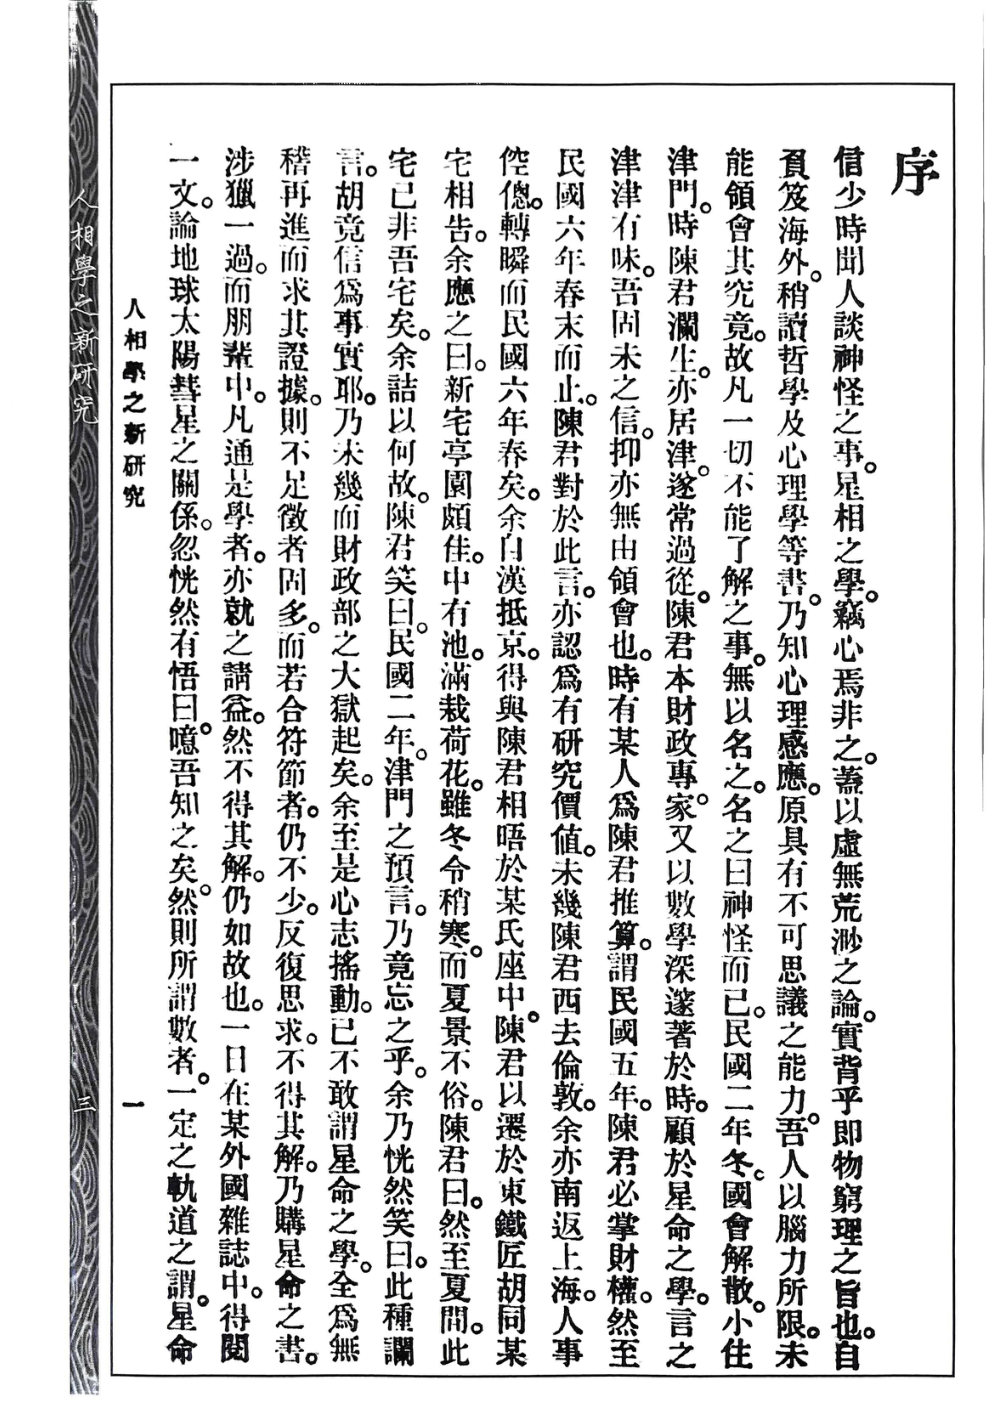 序
信少時聞人談神怪之事。星相之學。竊心焉非之。蓋以虛無荒渺之論。實背乎即物窮理之旨也。自
負笈海外。稍讀哲學及心理學等書。乃知心理感應。原具有不可思議之能力。吾人以腦力所限。未
能領會其究竟。故凡一切不能了解之事。無以名之。名之曰神怪而已。民國二年冬。國會解散。小住
津門。時陳君瀾生。亦居津。遂常過從。陳君本財政專家。又以數學深邃著於時。顧於星命之學。言之
津津有味。吾固未之信。抑亦無由領會也。時有某人爲陳君推算。謂民國五年。陳君必掌財權。然至
民國六年春末而止。陳君對於此言。亦認爲有研究價值。未幾陳君西去倫敦。余亦南返上海。人事
倥傯。轉瞬而民國六年春矣。余自漢抵京。得與陳君相晤於某氏座中。陳君以遷於東鐵匠胡同某
宅相告。余應之曰。新宅亭園頗佳。中有池。滿栽荷花。雖冬令稍寒。而夏景不俗。陳君曰。然至夏間。此
宅已非吾宅矣。余詰以何故。陳君笑曰。民國二年。津門之預言。乃竟忘之乎。余乃恍然笑曰。此種讕
言。胡竟信爲事實耶。乃未幾而財政部之大獄起矣。余至是心志搖動。已不敢謂星命之學。全爲無
稽再進而求其證據。則不足徵者固多。而若合符節者。仍不少。反復思求。不得其解。乃購星命之書。
涉獵一過。而朋輩中。凡通是學者。亦就之請益。然不得其解。仍如故也。一日在某外國雜誌中。得閱
一文。論地球太陽彗星之關係。忽恍然有悟曰。噫。吾知之矣。然則所謂數者。一定之軌道之謂。星命
人相學之新研究
一
人相學之新研究
三